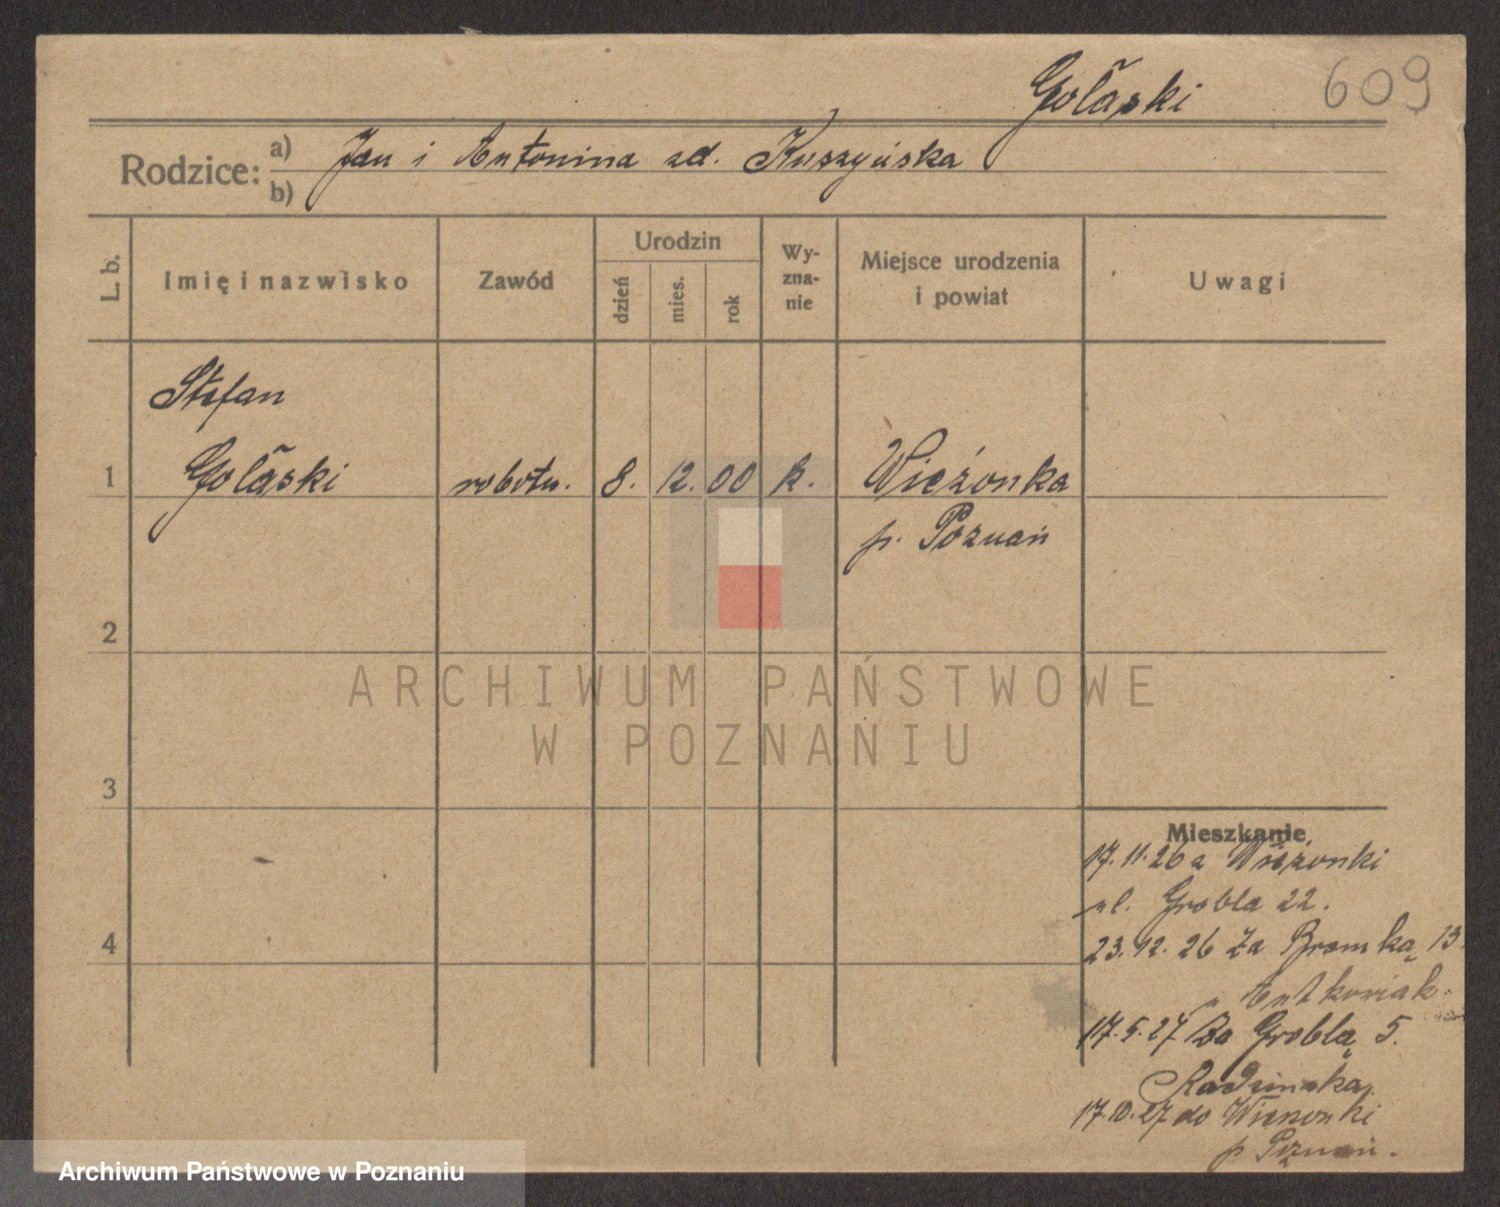 609
Gołaski
Rodzice: a) Jan i Antonina zd. Kuszyńska
b)
L. b.
Imię i nazwisko
Zawód
Urodzin
dzień
mies.
rok
Wy-
zna-
nie
Miejsce urodzenia
i powiat
Uwagi
Stefan
1 Gołaski robotn. 8. 12. 00 k. Wieżonka
p. Poznań
2
ARCHIWUM PAŃSTWOWE
W POZNANIU
3
Mieszkanie
17.11.26 z Wieżonki
ul. Grobla 22.
4
23.12.26 Za Bramką 13.
17.5.27 Za Groblą 5.
Radzińska
17.10.27 do Wieżonki
p. Poznań.
Archiwum Państwowe w Poznaniu